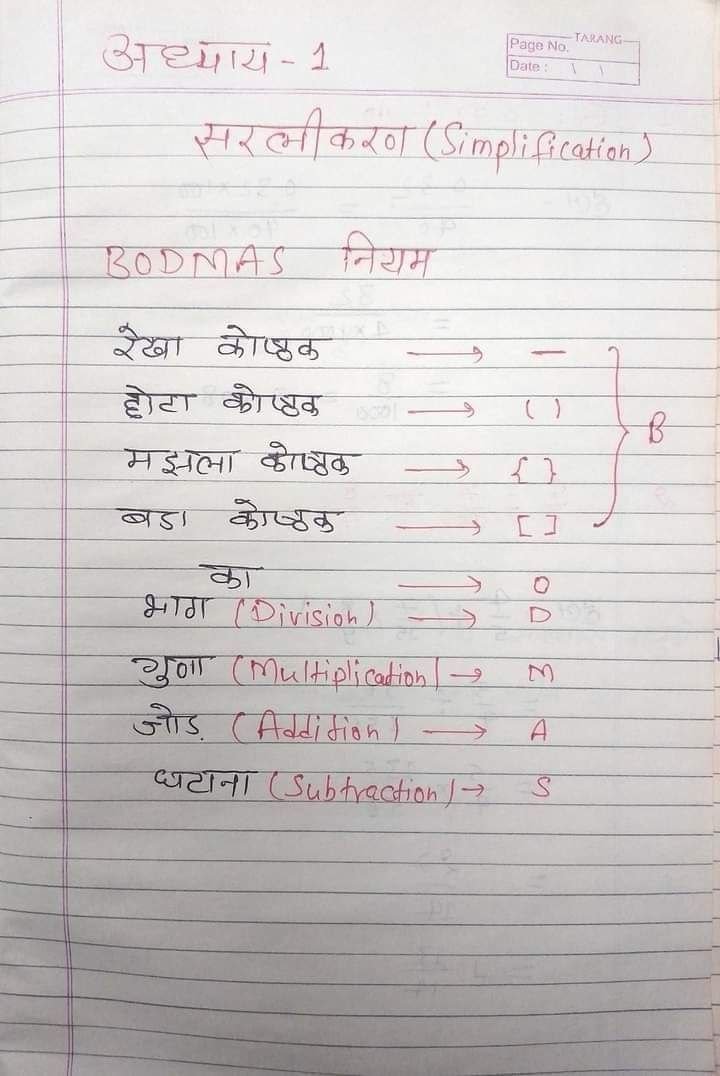 अध्याय - 1
TARANG
Page No.
Date : \ \
सरलीकरण (Simplification)
BODMAS नियम
रेखा कोष्ठक → —
छोटा कोष्ठक → ( )
मझला कोष्ठक → { } B
बडा कोष्ठक → [ ]
का → O
भाग (Division) → D
गुणा (Multiplication) → M
जोड़ (Addition) → A
घटाना (Subtraction) → S